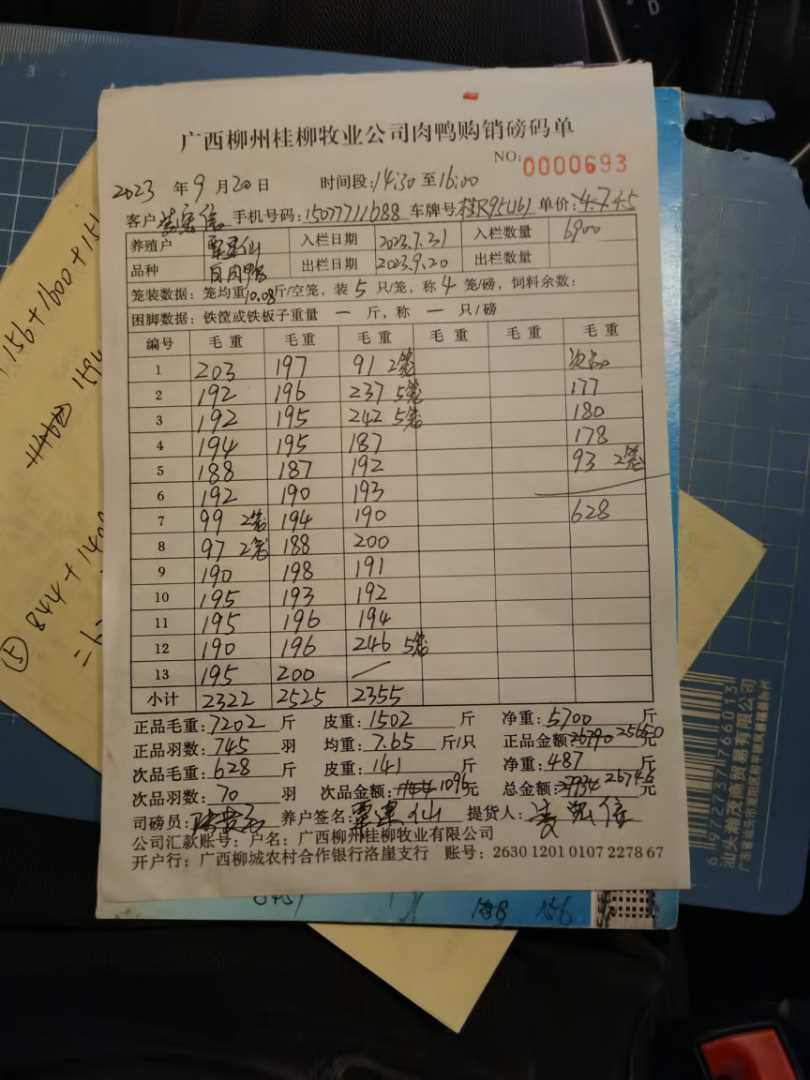 广西柳州桂柳牧业公司肉鸭购销磅码单
NO: 0000693
2023 年 9 月 20 日 时间段:14:30 至 16:00
客户 手机号码:15077711688 车牌号桂R95U61 单价:4.7 4.5
养殖户 覃建仙 入栏日期 2023.7.31 入栏数量 6900
品种 白肉鸭 出栏日期 2023.9.20 出栏数量
笼装数据: 笼均重10.08斤/空笼，装 5 只/笼，称 4 笼/磅，饲料余数:
困脚数据: 铁筐或铁板子重量 一 斤，称 一 只/磅
编号 毛重 毛重 毛重 毛重 毛重 毛重
1 203 197 91 2笼 次品
2 192 196 237 5笼 177
3 192 195 242 5笼 180
4 194 195 187 178
5 188 187 192 93 2笼
6 192 190 193
7 99 2笼 194 190 628
8 97 2笼 188 200
9 190 198 191
10 195 193 192
11 195 196 194
12 190 196 246 5笼
13 195 200
小计 2322 2525 2355
正品毛重:7202 斤 皮重:1502 斤 净重:5700 斤
正品羽数:745 羽 均重:7.65 斤/只 正品金额:26790 25650 元
次品毛重:628 斤 皮重:141 斤 净重:487 斤
次品羽数:70 羽 次品金额:1144 1096元 总金额:27934 26746 元
司磅员: 养户签名:覃建仙 提货人:
公司汇款账号: 户名: 广西柳州桂柳牧业有限公司
开户行: 广西柳城农村合作银行洛崖支行 账号: 2630 1201 0107 2278 67
156+1600+151
1594
⑤ 844+140
6972737766013
汕头市 贸易有限公司
156
3
D